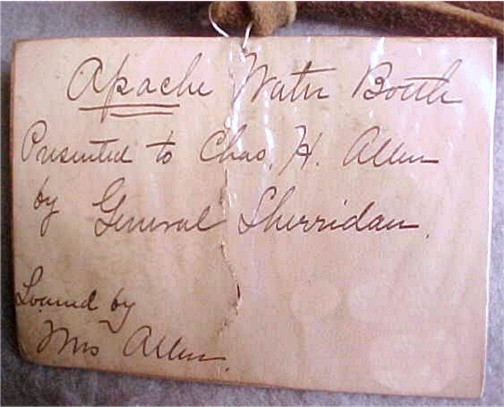 Apache Water Bottle
Presented to Chas. H. Allen
by General Sherridan.
Loaned by
Mrs Allen.